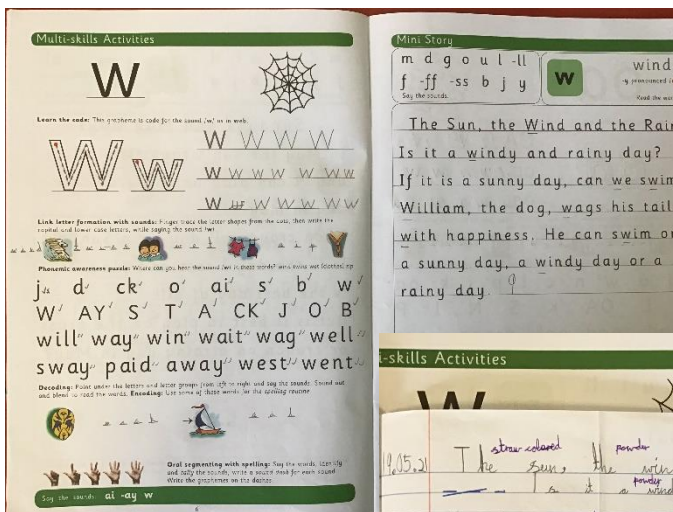 Multi-skills Activities
w
Learn the code: This grapheme is code for the sound /w/ as in web.
W W W W W
W w
w w w w w w w
w w w w w w
Link letter formation with sounds: Finger trace the letter shapes from the dots, then write the
capital and lower case letters, while saying the sound /w/
Phonemic awareness puzzle: Where can you hear the sound /w/ in these words? wind twins wet (clothes) zip
j d ck o ai s b w
W AY S T A CK J O B
will way win wait wag well
sway paid away west went
Decoding: Point under the letters and letter groups from left to right and say the sounds. Sound out
and blend to read the words. Encoding: Use some of these words for the spelling routine
Oral segmenting with spelling: Say the words, identify
and tally the sounds, write a sound dash for each sound
Write the graphemes on the dashes.
Say the sounds: ai -ay w
Mini Story
m d g o u l -ll
f -ff -ss b j y
Say the sounds
w
wind
-y pronounced
Read the
The Sun, the Wind and the Rain
Is it a windy and rainy day?
If it is a sunny day, can we swim
William, the dog, wags his tail
with happiness. He can swim o
a sunny day, a windy day or a
rainy day.
i-skills Activities
19.05.21
straw-colored powder
The Sun, the win
powder
Is it a wind